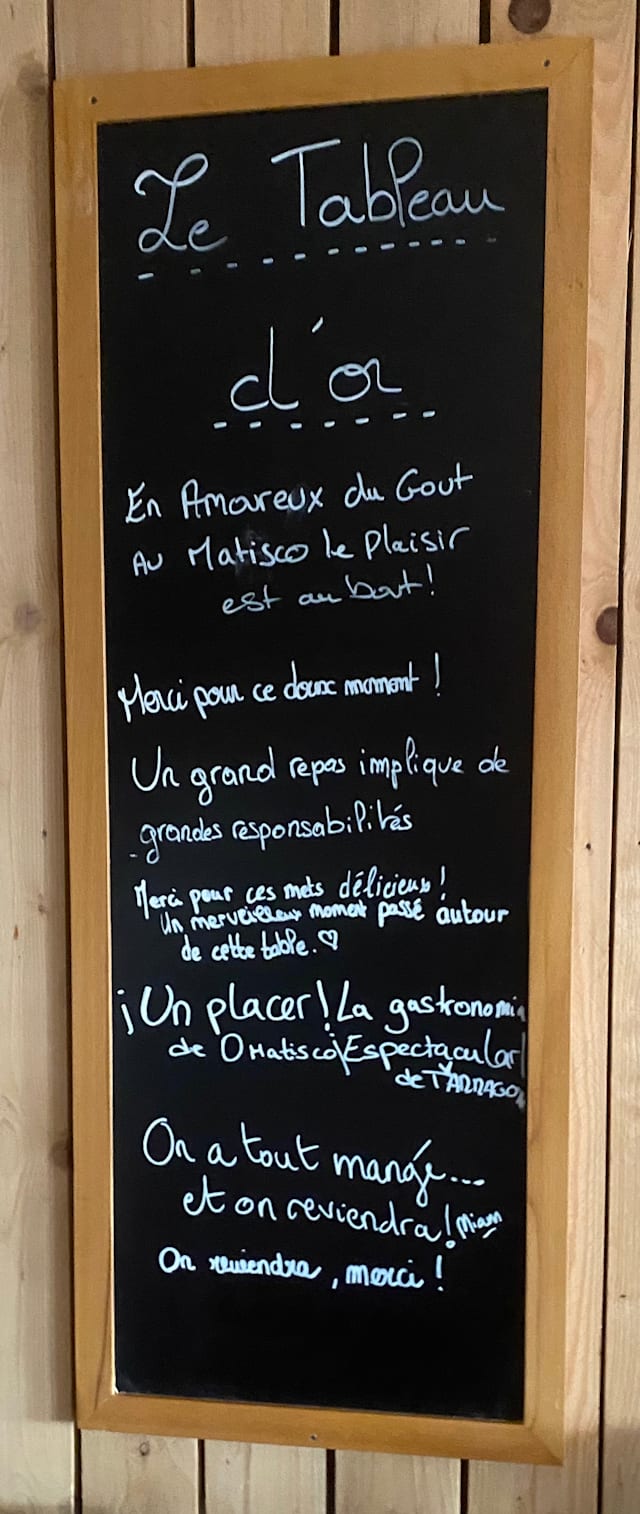 Le Tableau
d'or
En Amoureux du Gout
Au Matisco le Plaisir
est au bout!
Merci pour ce doux moment !
Un grand repas implique de
grandes responsabilités
Merci pour ces mets délicieux !
Un merveilleux moment passé autour
de cette table. ♡
¡Un placer! La gastronomia
de O Matisco ¡Espectacular!
de TARRAGONA
On a tout mangé...
et on reviendra! Miam
On reviendra, merci !